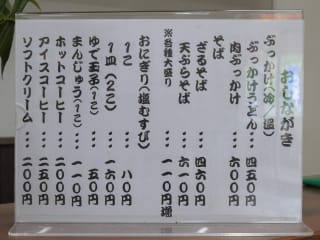 おしながき
ぶっかけ(冷/温)
ぶっかけうどん…四五〇円
肉ぶっかけ…六〇〇円
そば
ざるそば…四六〇円
天ぷらそば…六一〇円
※各種大盛り…一一〇円増
おにぎり(塩むすび)
1こ…八〇円
1皿(2こ)…一六〇円
ゆで玉子(1こ)…五〇円
まんじゅう(1こ)…一一〇円
ホットコーヒー…二〇〇円
アイスコーヒー…二五〇円
ソフトクリーム…二〇〇円